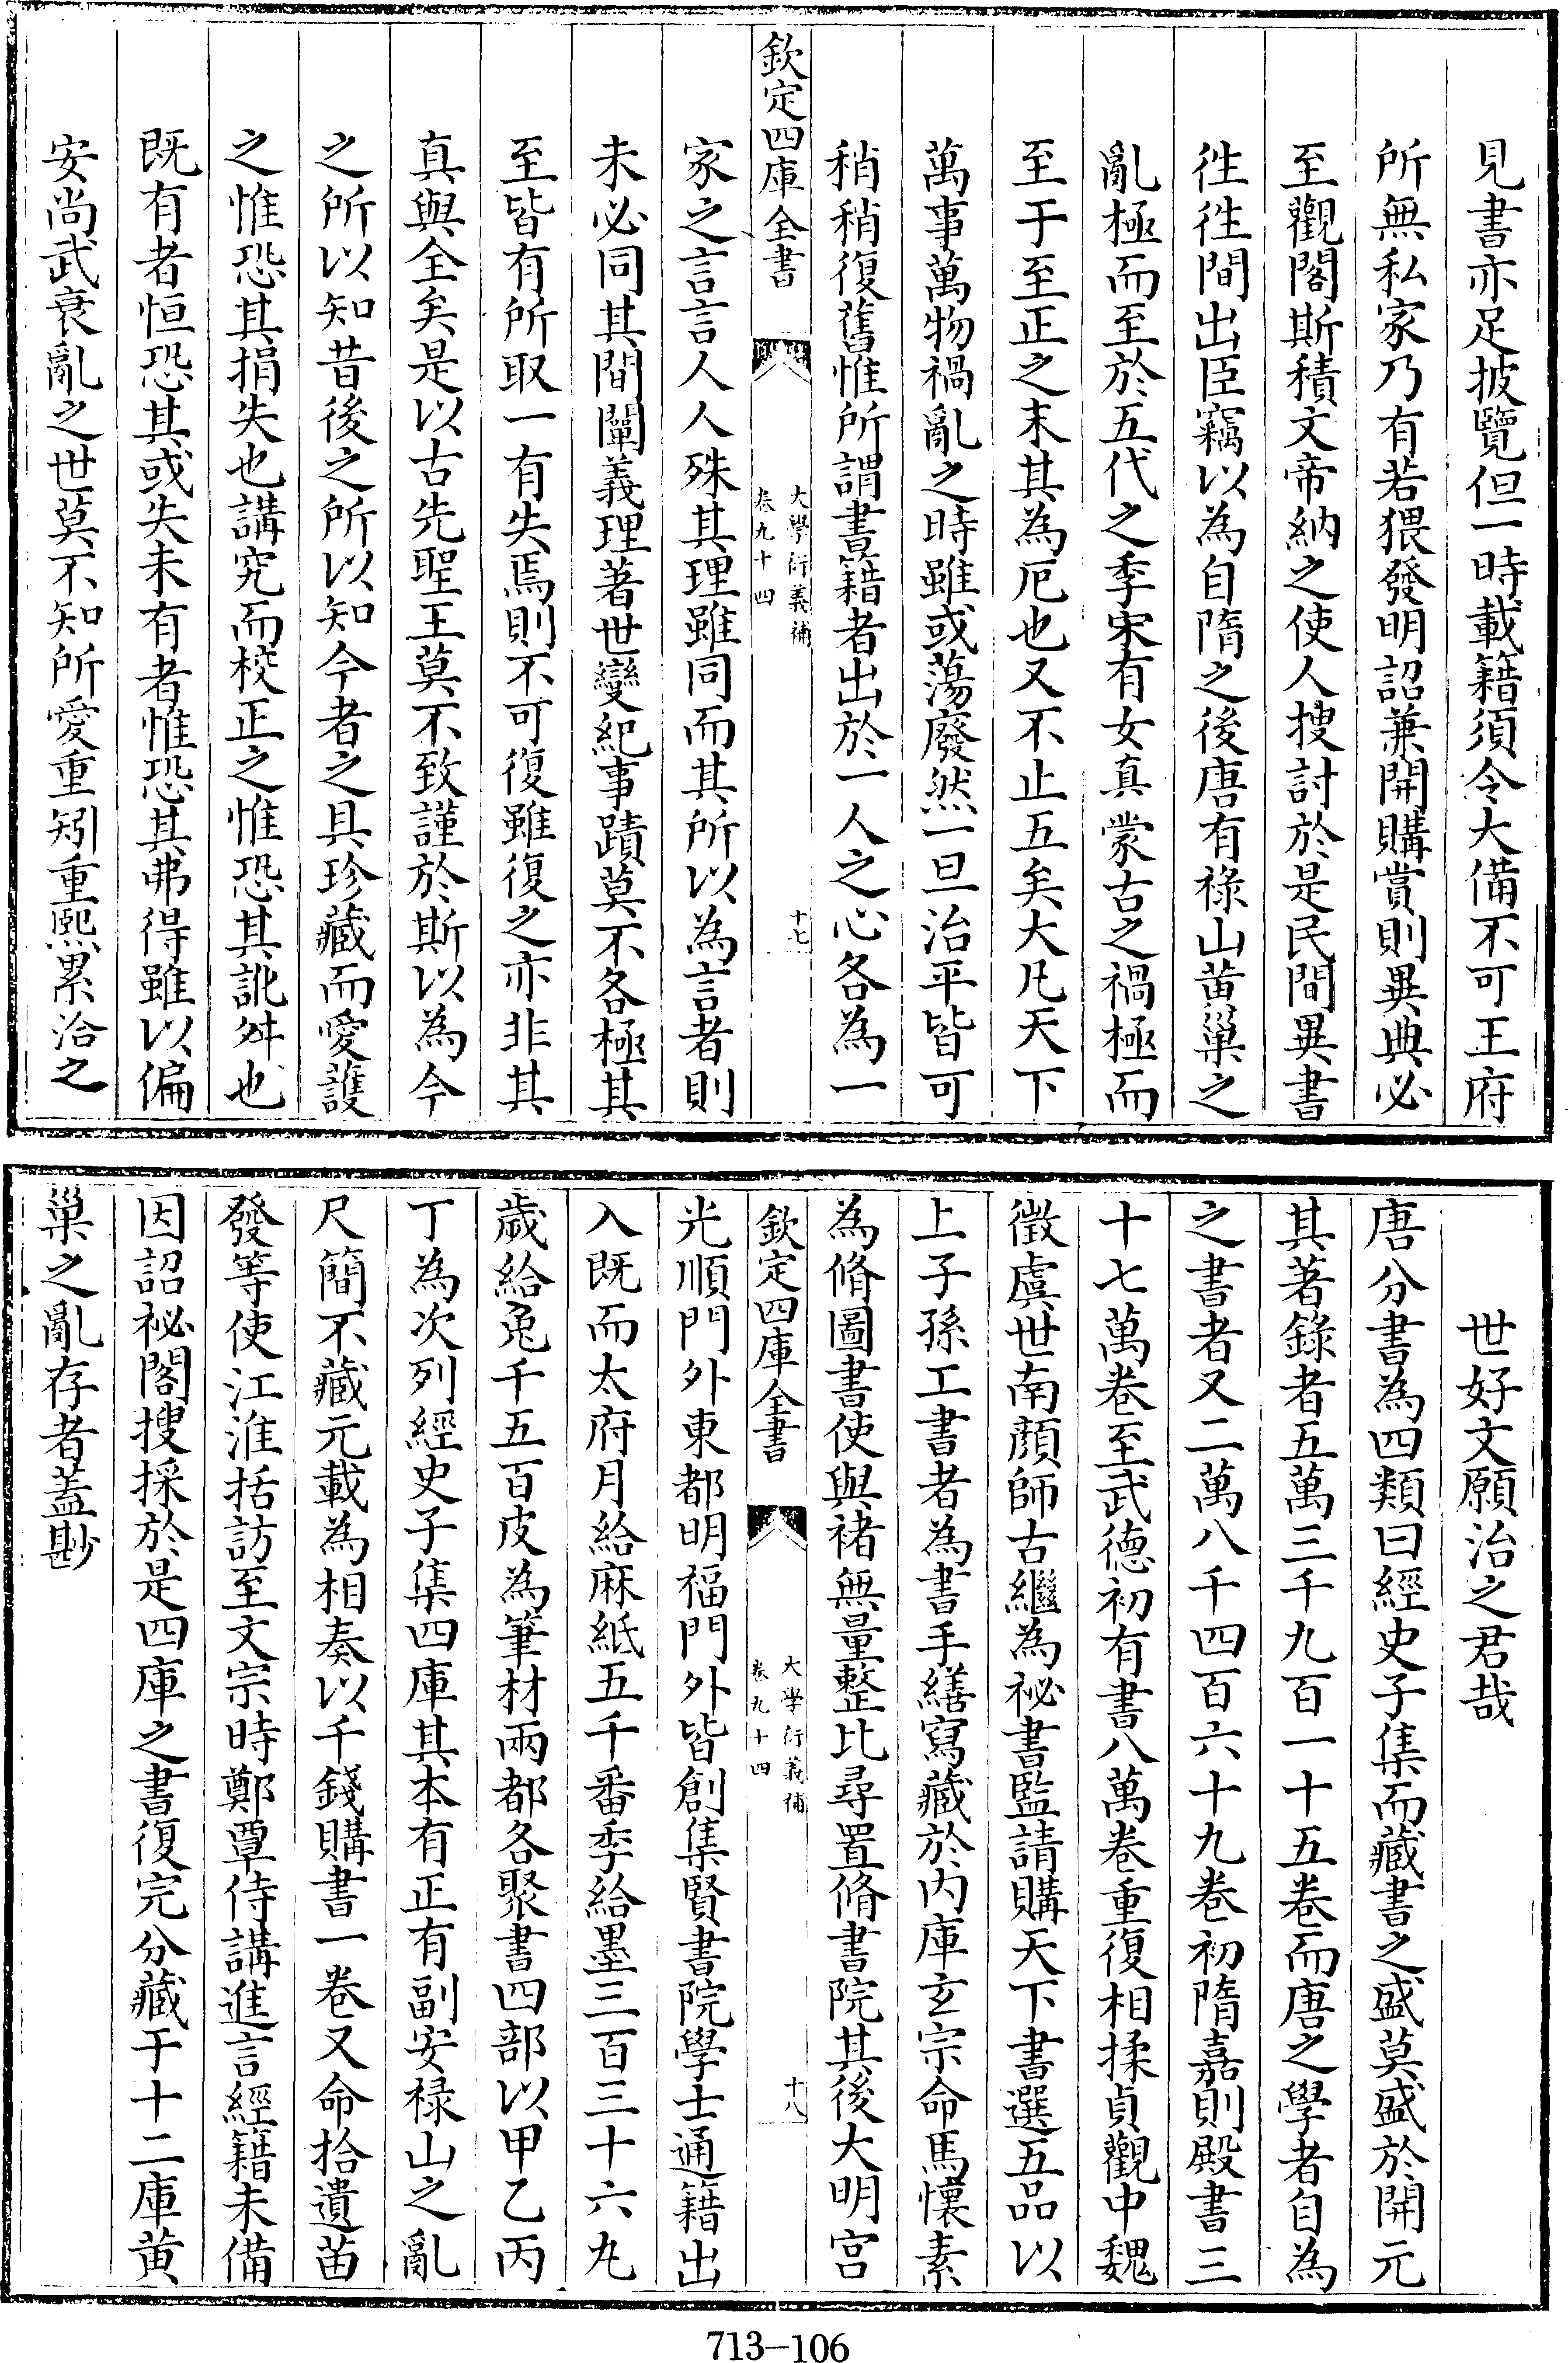 見書亦足披覽但一時載籍須令大備不可王府
所無私家乃有若猥發明詔兼開購賞則異典必
至觀閣斯積文帝納之使人搜討於是民間異書
徃徃間出臣竊以為自隋之後唐有祿山黄巢之
亂極而至於五代之季宋有女真蒙古之禍極而
至于至正之末其為厄也又不止五矣大凡天下
萬事萬物禍亂之時雖或蕩廢然一旦治平皆可
稍稍復舊惟所謂書籍者出於一人之心各為一
欽定四庫全書
大學衍義補
卷九十四
十七
家之言言人人殊其理雖同而其所以為言者則
未必同其間闡義理著世變紀事蹟莫不各極其
至皆有所取一有失焉則不可復雖復之亦非其
真與全矣是以古先聖王莫不致謹於斯以為今
之所以知昔後之所以知今者之具珍藏而愛護
之惟恐其捐失也講究而校正之惟恐其訛舛也
既有者恒恐其或失未有者惟恐其弗得雖以偏
安尚武衰亂之世莫不知所愛重矧重熙累洽之
世好文願治之君哉
唐分書為四類曰經史子集而藏書之盛莫盛於開元
其著錄者五萬三千九百一十五卷而唐之學者自為
之書者又二萬八千四百六十九卷初隋嘉則殿書三
十七萬卷至武德初有書八萬卷重復相揉貞觀中魏
徵虞世南顔師古繼為祕書監請購天下書選五品以
上子孫工書者為書手繕寫藏於内庫玄宗命馬懷素
為脩圖書使與禇無量整比尋置脩書院其後大明宫
欽定四庫全書
大學衍義補
卷九十四
十八
光順門外東都明福門外皆創集賢書院學士通籍出
入既而太府月給麻紙五千番季給墨三百三十六丸
歲給兎千五百皮為筆材兩都各聚書四部以甲乙丙
丁為次列經史子集四庫其本有正有副安禄山之亂
尺簡不藏元載為相奏以千錢購書一卷又命拾遺苗
發等使江淮括訪至文宗時鄭覃侍講進言經籍未備
因詔祕閣搜採於是四庫之書復完分藏于十二庫黄
巢之亂存者蓋尠
713-106